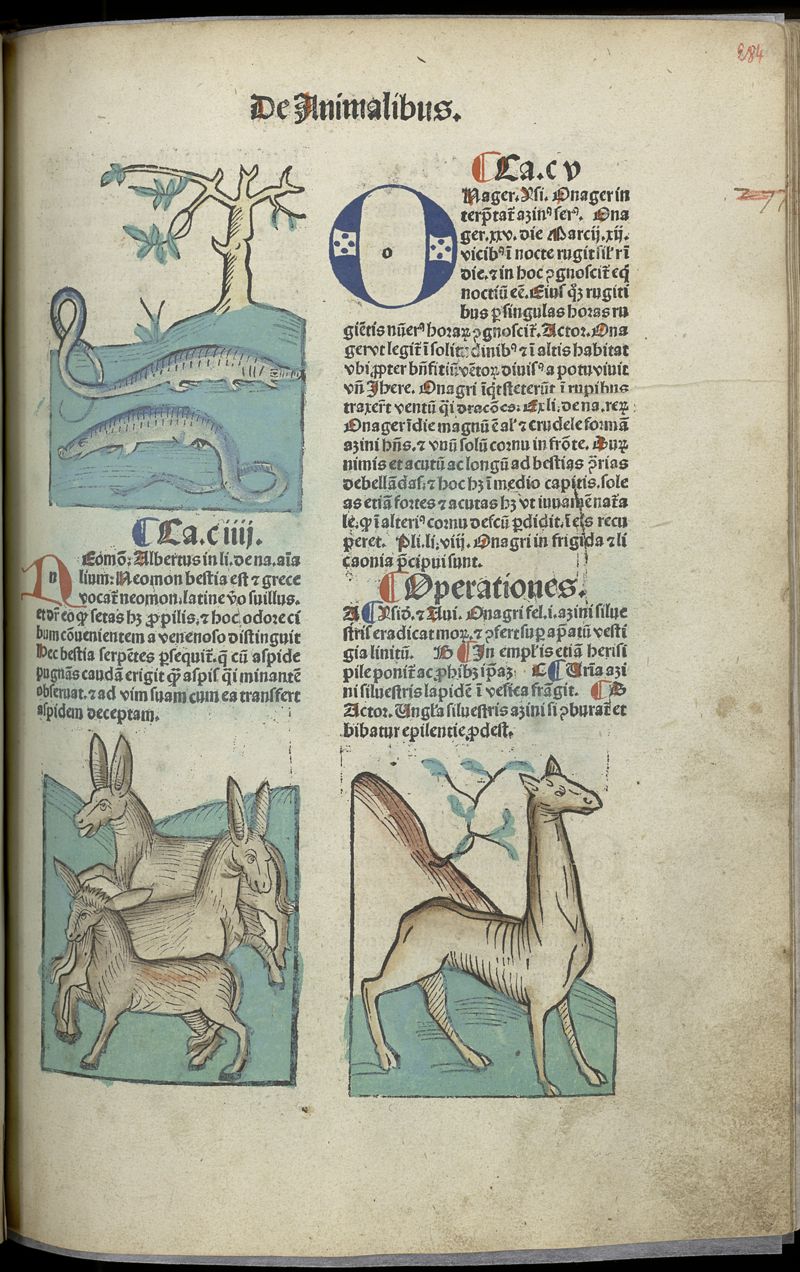 284
De Animalibus.
Ca.ciiij.
NEomō: Albertus in li. de na. aīa
lium: Neomon bestia est ⁊ grece
vocat̄ neomon. latine v̄o suillus.
et dr̄ eo ꝙ setas hꝫ ꝓ pilis. ⁊ hoc odore ci
bum cōuenientem a venenoso distinguit
Hec bestia serpētes ꝑsequit̄. q̄ cū aspide
pugnās caudām erigit qm̄ aspis q̄i minantē
obseruat. ⁊ ad vim suam cum ea transfert
aspidem deceptam.
Ca.cv
o
Nager. Ysi. Onager in
terp̄tat̄ azinꝰ ferꝰ. Ona
ger. xxv. die Marcij. xij.
vicibꝰ ī nocte rugit sil̄r ī
die. ⁊ in hoc ꝯgnoscit̄ eq̄
noctiū eē. Eius qꝫ rugiti
bus ꝑ singulas horas ru
giētis nūerꝰ horaꝝ ꝯgnoscit̄. Actor. Ona
ger vt legit̄ ī solitudinibꝰ ⁊ ī altis habitat
vbi ꝓpter bn̄fitiū vētoꝝ diuisꝰ a potu viuit
vn̄ Jhere. Onagri īq̄t steterūt ī rupibus
traxer̄t ventū q̄i dracōes. Ex li. de na. reꝝ
Onager īdie magnū ē al̄ ⁊ crudele formā
azini hn̄s. ⁊ vnū solū cornu in frōte. Duꝝ
nimis et acutū ac longū ad bestias ꝯ̄rias
debellādas. ⁊ hoc hꝫ ī medio capitis. sole
as etiā fortes ⁊ acutas hꝫ vt iuuamē nat̄a
le. ꝙ ī alteriꝰ cornu descū ꝑdidit. ī eis recu
peret. Pli. li. viij. Onagri in frigida ⁊ li
caonia p̄cipui sunt.
Operationes.
A Ysiō. ⁊ Aui. Onagri fel. i. azini silue
stris eradicat moꝝ. ⁊ ꝯfert suꝑ apatū vesti
gia linitū. B In empl̄is etiā herisi
pile ponit̄ ac ꝓhibꝫ ip̄aꝫ. C Uri̅a azi
ni siluestris lapidē ī vesica frāgit. D
Actor. Ungl̄a siluestris azini si ꝯburat̄ et
bibatur epilentie ꝓdest.